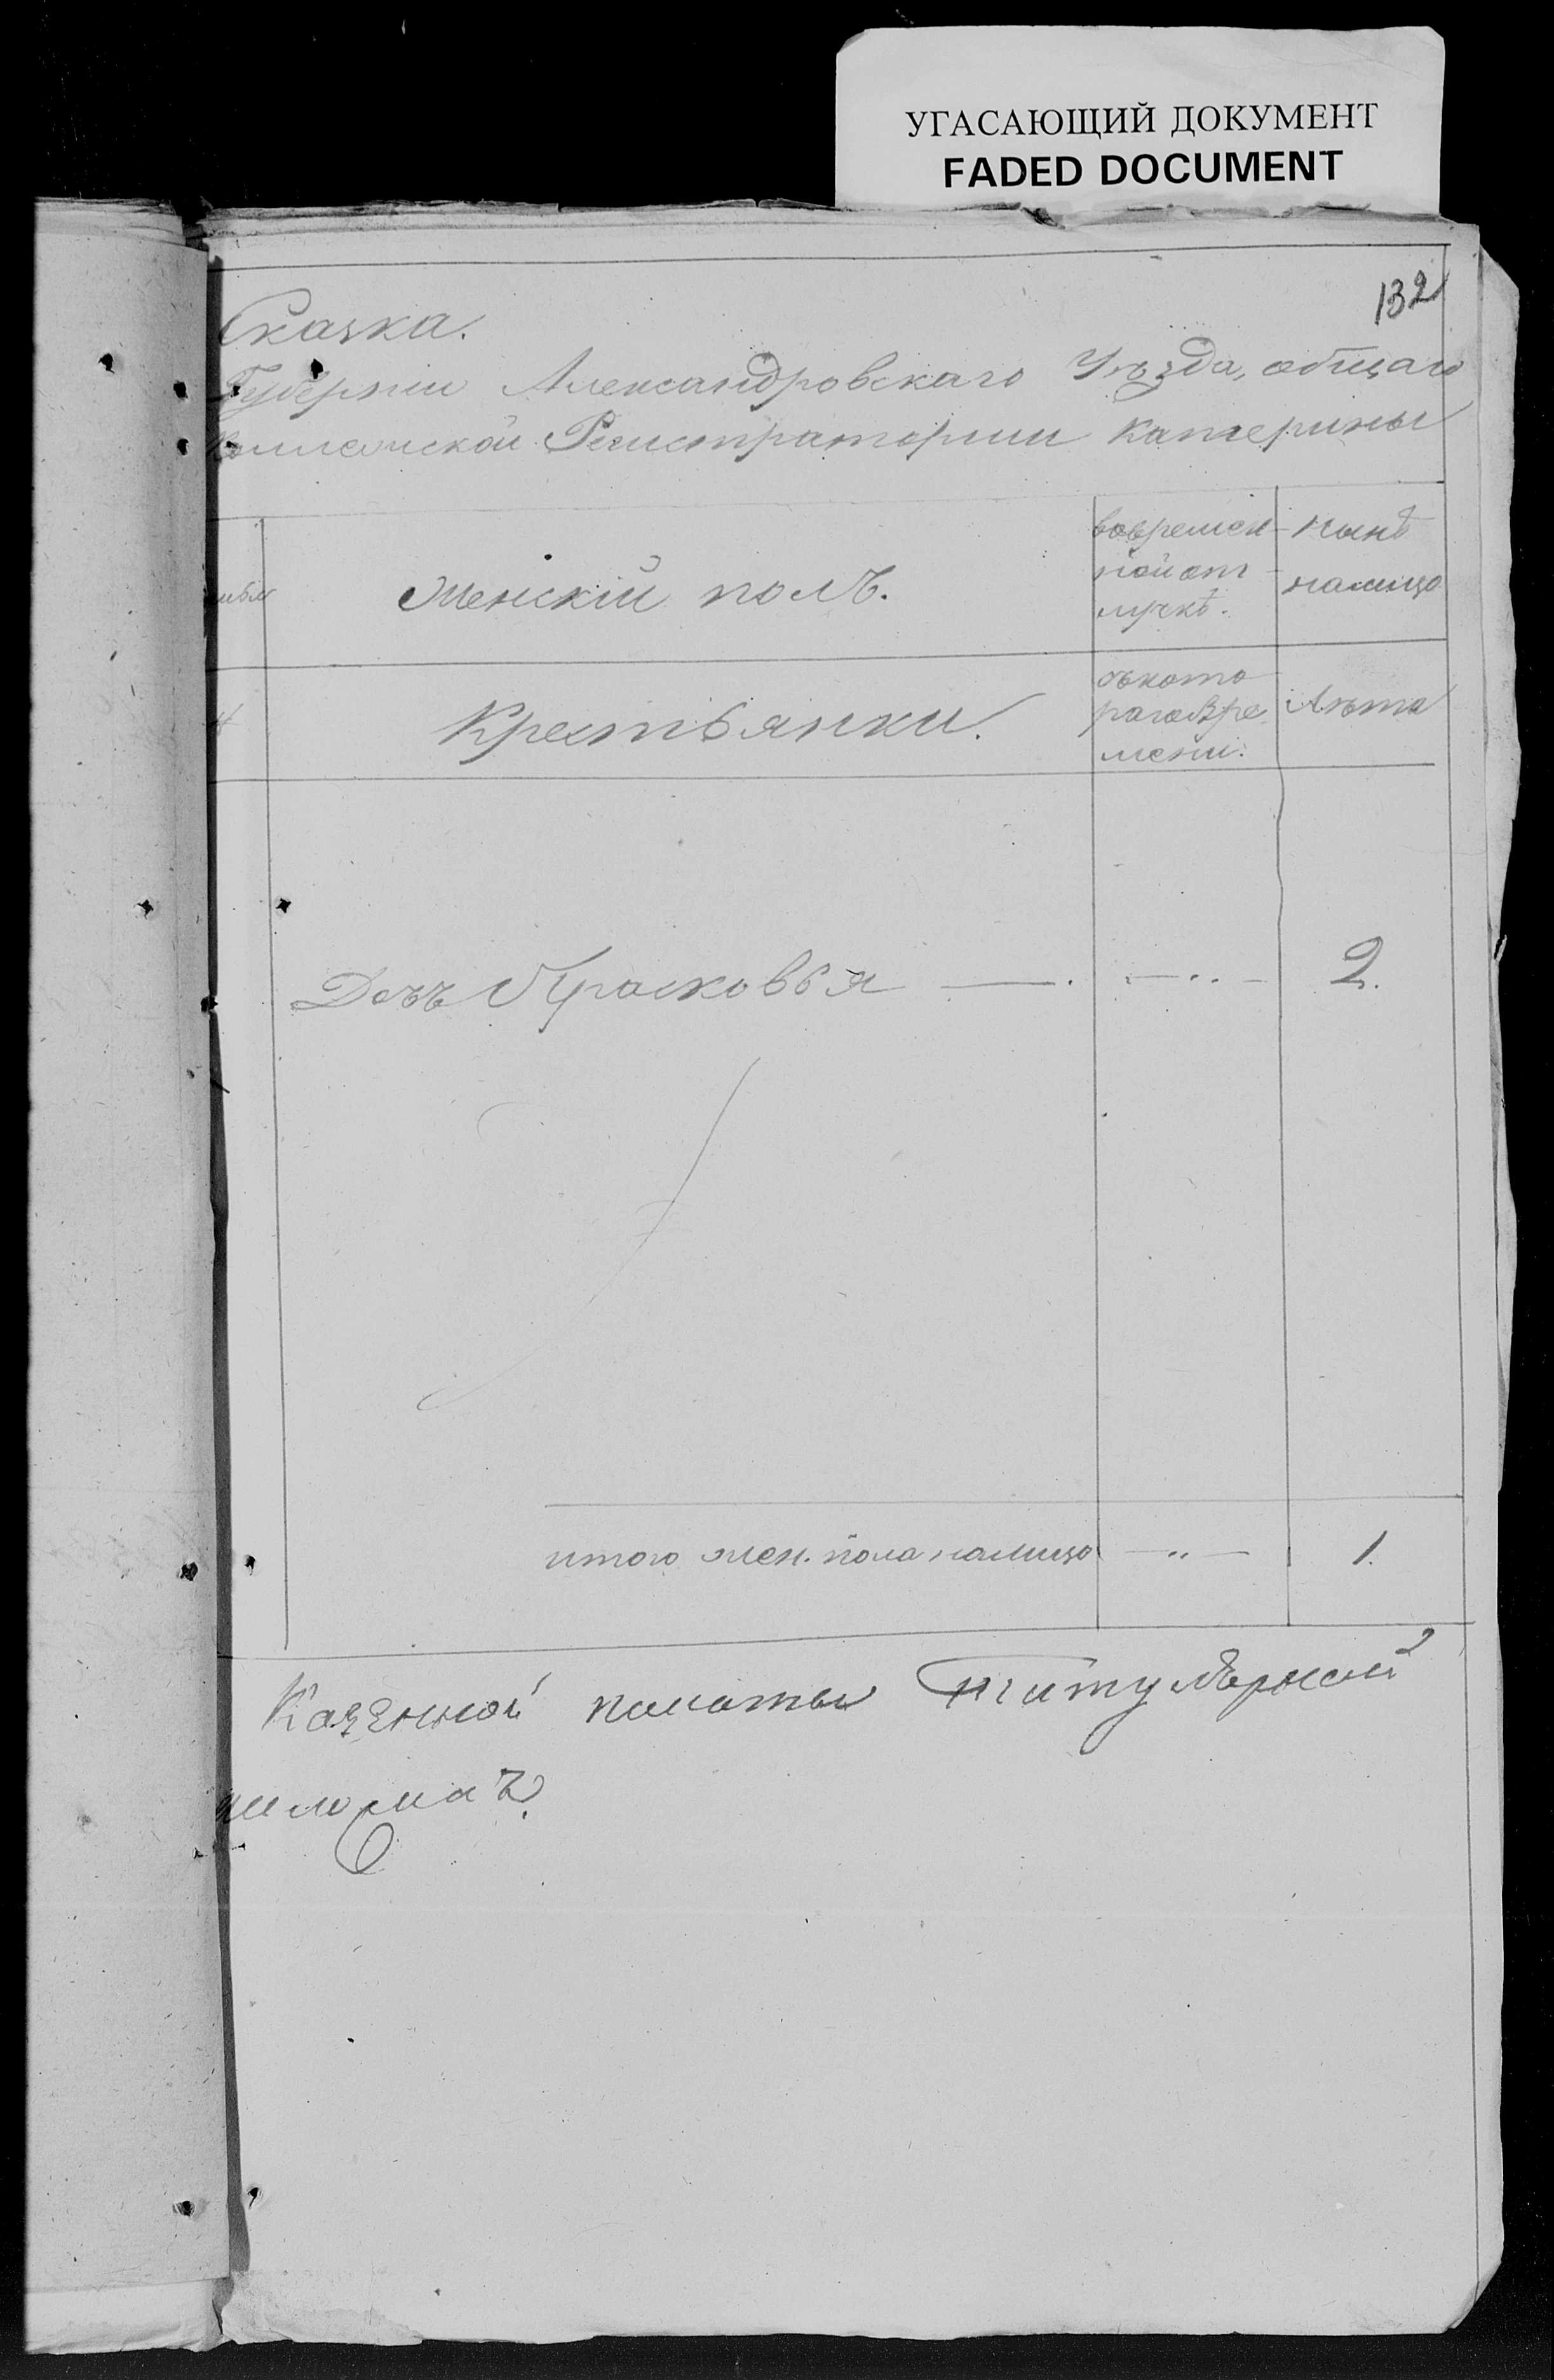 УГАСАЮЩИЙ ДОКУМЕНТ
FADED DOCUMENT
132
Сказка.
Губерніи Александровскаго Уѣзда, общаго
Коллежской Регистраторши Катерины
Женскій полъ.
вовремен-
ной от-
лучкѣ.
нынѣ
налицо
Крестьянки.
съкото
раговре
мени.
Лѣта
Дочь Прасковья — . — . . — 2.
итого жен. пола налицо — „ — 1.
Казенной палаты Титулярной